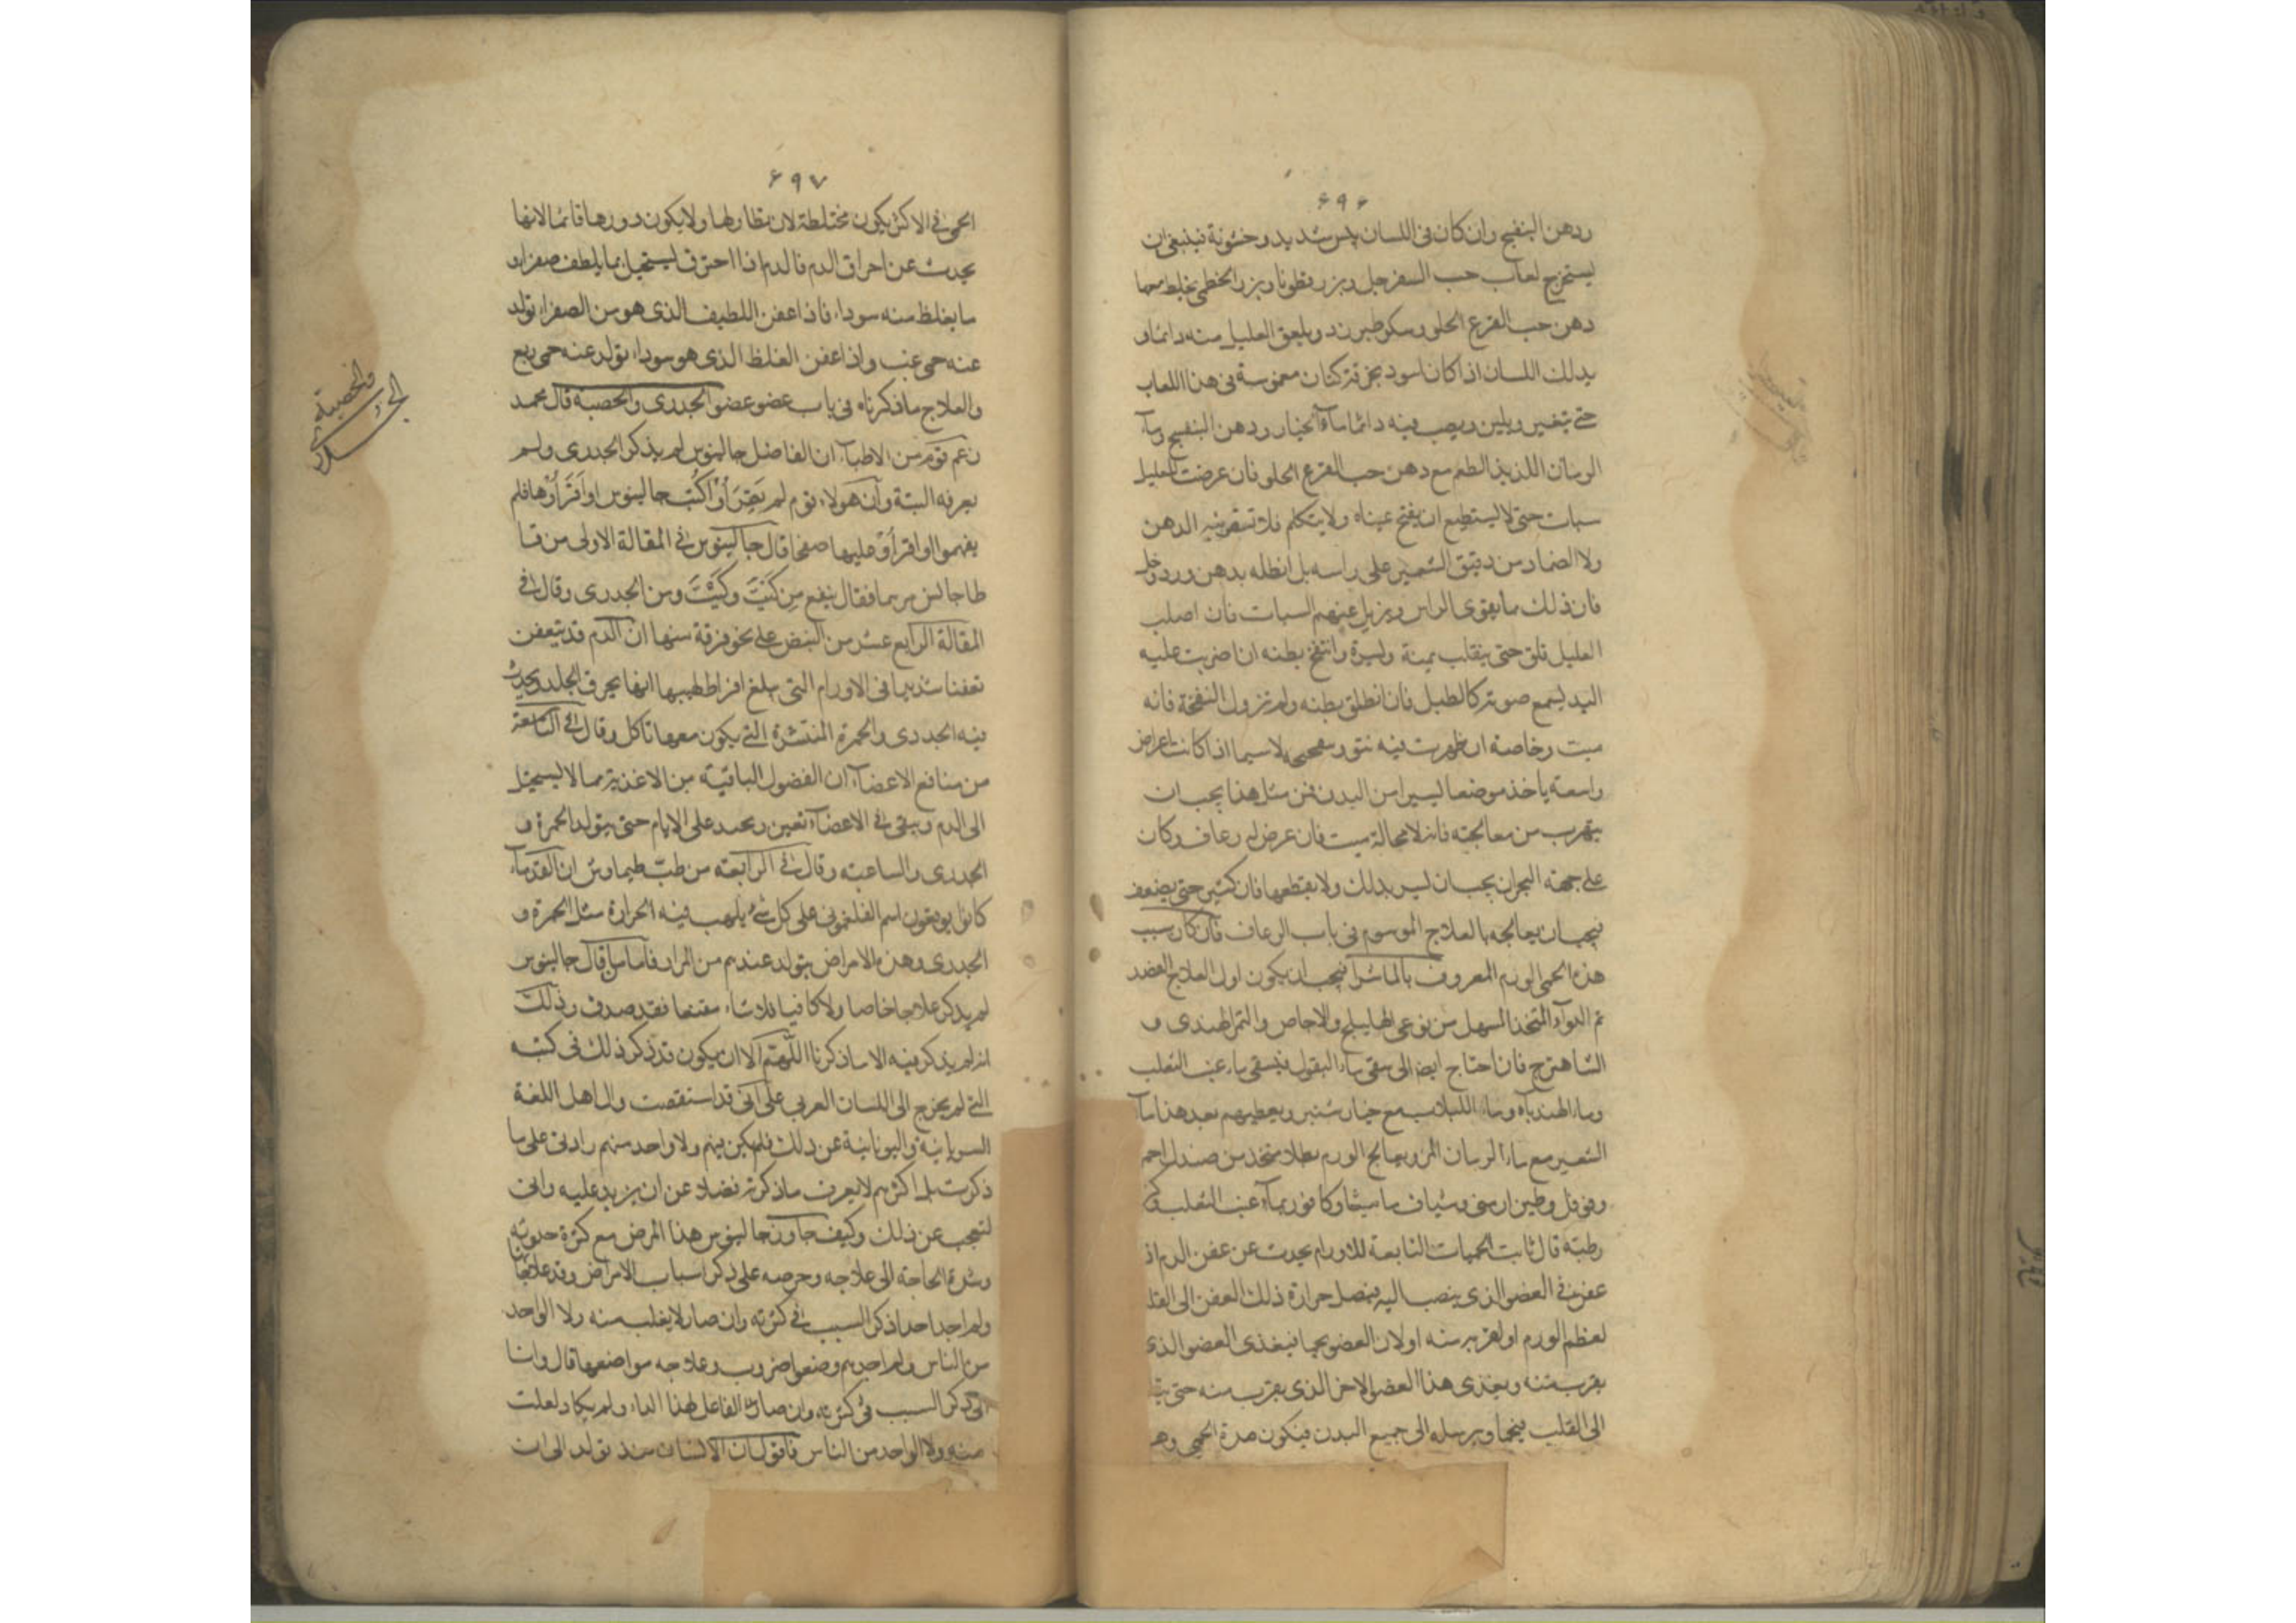 ۶۹۶
ودهن البنفسج وان كان فى اللسان يبس شديد وخشونة فينبغى ان
يستخرج لعاب حب السفرجل وبزر قطونا وبزر الخطمى يخلط معها
دهن حب القرع الحلو وسكر طبرزد ويلعق العليل منه دائما و
يدلك اللسان اذا كان اسود بخرقة كتان مغموسة فى هذا اللعاب
حتى يتغير ويلين ويصب فيه دائما ماء الخيار ودهن البنفسج وماء
الرمان اللذيذ الطعم مع دهن حب القرع الحلو فان عرضت للعليل
سبات حتى لا يستطيع ان يفتح عيناه ولا يتكلم فلا تسقونيه الدهن
ولا الضماد من دقيق الشعير على راسه بل انطله بدهن ورد وخل
فان ذلك مما يقوى الراس ويزيل عنهم السبات فان اصاب
العليل قلق حتى يتقلب يمنة ويسرة وانتفخ بطنه ان ضربت عليه
اليد يسمع صوته كالطبل فان انطلق بطنه ولم تزول النفخة فانه
ميت وخاصة ان ظهرت فيه لاسيما اذا كانت اعراض
واسعة ياخذ موضعا يسيرا من البدن فمن مثل هذا يجب ان
يهرب من معالجته فانه لا محالة ميت فان عرض له رعاف وكان
على جهة البحران يجب ان ليس بذلك ولا يقطعها فان كثير حتى يضعف
فيجب ان يعالجه بالعلاج الموسوم فى باب الرعاف فان كان سبب
هذه الحمى الورم المعروف بالماشرا فيجب ان يكون اول العلاج الفصد
ثم الدواء المتخذ المسهل من نوعى الهليلج والاجاص والتمر الهندى و
الشاهترج فان احتاج ايضا الى سقى ماء البقول فيسقى ماء عنب الثعلب
وماء الهندباء وماء اللبلاب مع خيار شنبر ويعطيهم بعد هذا ماء
الشعير مع ماء الرمان المز ويعالج الورم بطلا متخذ من صندل احمر
وفوفل وطين ارمنى وشياف ماميثا وكافور بماء عنب الثعلب
رطبة قال ثابت الحميات التابعة للاورام يحدث عن عفن الدم اذ
عفن فى العضو الذى ينصب اليه فيصل حرارة ذلك العفن الى القلب
لعظم الورم او لقربه منه او لان العضو يحما فيغذى العضو الذى
بقرب منه ويغذى هذا العضو الاخر الذى بقرب منه حتى
الى القلب فيحما ويرسله الى جميع البدن فيكون هذه الحمى وهو
۶۹۷
الحمى فى الاكثر يكون مختلطة لان نظارلها ولا يكون دورها قائما لانها
يحدث عن احراق الدم فالدم اذا احترق يستحيل بما يلطف صفرا و
ما يغلظ منه سوداء فاذا عفن اللطيف الذى هو من الصفراء تولد
عنه حمى غب واذا عفن الغلظ الذى هو سوداء تولد عنه حمى ربع
والعلاج ما ذكرناه فى باب عضو عضو الجدرى والحصبة قال محمد
زعم قوم من الاطباء ان الفاضل جالينوس لم يذكر الجدرى ولم
يعرفه البتة وان هولاء قوم لم يقرأوا كتب جالينوس او اقرأوها فلم
يفهموا او اقرأوا عليها صفحا قال جالينوس فى المقالة الاولى من قا
طاجانس مرهما فقال ينفع من كيت وكيت ومن الجدرى وقال فى
المقالة الرابع عشر من النبض على نحو فرقة منها ان الدم قد يتعفن
تعفنا شديدا فى الاورام التى يبلغ افراط لهيبها انها يحرق الجلد ويحدث
فيه الجدرى والحمرة المنتشرة التى يكون معها تاكل وقال فى التاسعة
من منافع الاعضاء ان الفضول الباقية من الاغذية مما لا يستحيل
الى الدم ويبقى فى الاعضاء تعفن ويحتد على الايام حتى يتولد الحمرة و
الجدرى والساعية وقال فى الرابعة من طب طيماوس ان القدماء
كانوا يوقعون اسم الفلغمونى على كل شئ يلهب فيه الحرارة مثل الحمرة و
الجدرى وهذه الامراض يتولد عندهم من المرار فاما من قال جالينوس
لم يذكر علاجا خاصا ولا كافيا فلا شاء مقنعا فقد صدق وذلك
انه لم يذكر فيه الا ما ذكرنا اللهم الا ان يكون قد ذكر ذلك فى كتبه
التى لم يخرج الى اللسان العربى على انى قد استقصت وال اهل اللغة
السريانية واليونانية عن ذلك فلم يكن فيهم ولا واحد منهم زادنى على ما
ذكرت بل اكثرهم لا يعرف ما ذكرته فضلا عن ان يزيد عليه وانى
لتعجب عن ذلك وكيف جاوز جالينوس هذا المرض مع كثرة حدوثه
وشدة الحاجة الى علاجه وحرصه على ذكر اسباب الامراض وقد علاجاتها
ولم اجد احدا ذكر السبب فى كثرته وان صار لا يغلب منه ولا الواحد
من الناس ولم اجدهم وضعوا ضروب وعلاجه مواضعها قال وانا
انى ذكر السبب فى كثرته وان صار الفاعل لهذا الداء ولم يكاد لعلت
منه ولا الواحد من الناس فاقول ان الانسان منذ تولد الى ان
الجدرى
والحصبة